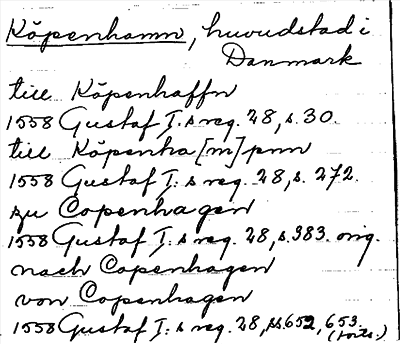 Köpenhamn, huvudstad i
Danmark
till Köpenhaffn
1558 Gustaf I:s reg. 28, s. 30.
till Köpenha[m]pnn
1558 Gustaf I:s reg. 28, s. 272.
zu Copenhagen
1558 Gustaf I:s reg. 28, s. 383. orig.
nach Copenhagen
von Copenhagen
1558 Gustaf I:s reg. 28, ss. 652, 653.
(forts.)